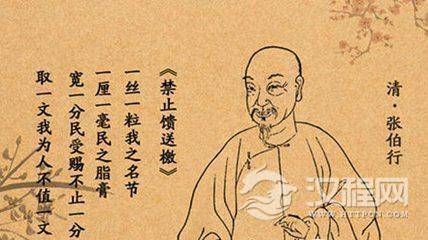 清·张伯行
《禁止馈送檄》
一丝一粒我之名节
一厘一毫民之脂膏
宽一分民受赐不止一分
取一文我为人不值一文
汉程网
WWW.HTTPCN.COM